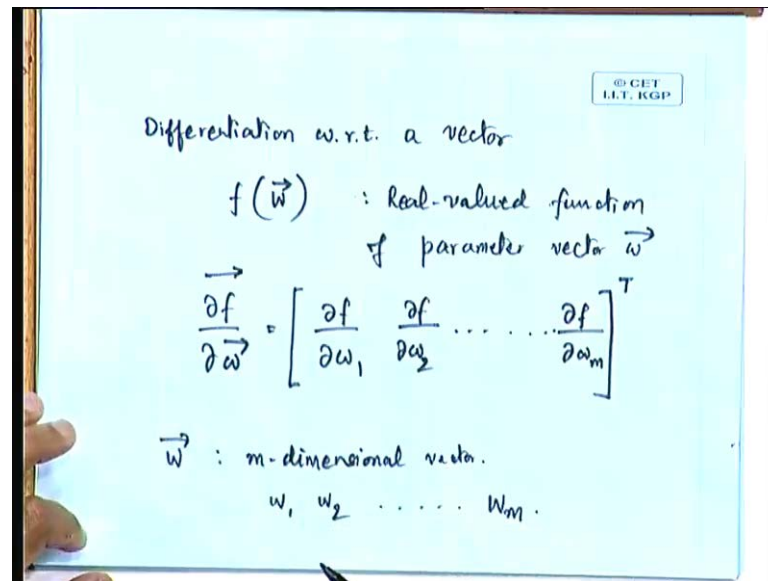 © CET
I.I.T. KGP
Differentiation w.r.t. a vector
f(w⃗) : Real-valued function
of parameter vector w⃗
∂f⃗/∂w⃗ = [ ∂f/∂w₁ ∂f/∂w₂ ...... ∂f/∂wₘ ]ᵀ
w⃗ : m-dimensional vector.
w₁ w₂ ..... wₘ.